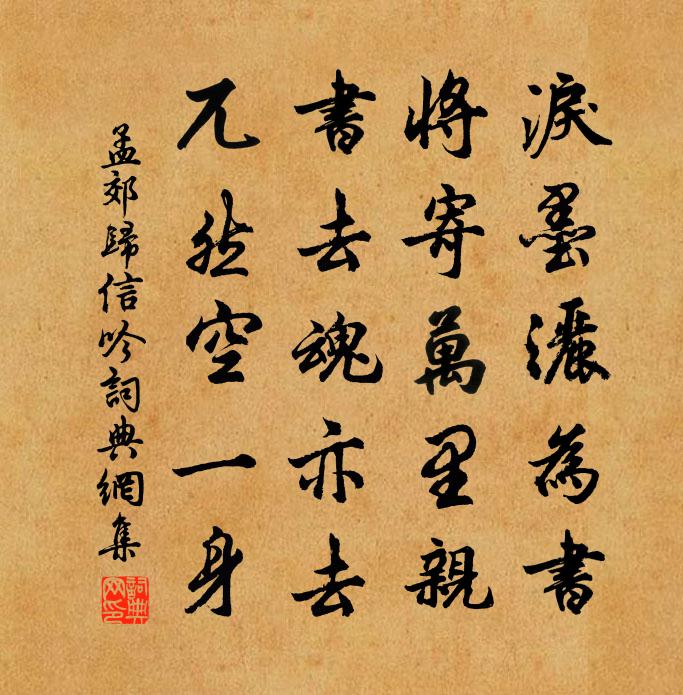 淚墨灑為書
將寄萬里親
書去魂亦去
兀然空一身
孟郊歸信吟詞典網集
詞典網印